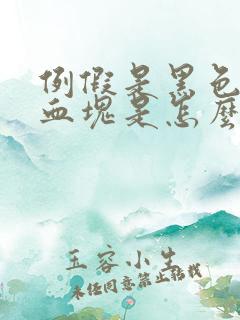 例假是黑色
血塊是怎麼
玉容小生
未经同意禁止转载